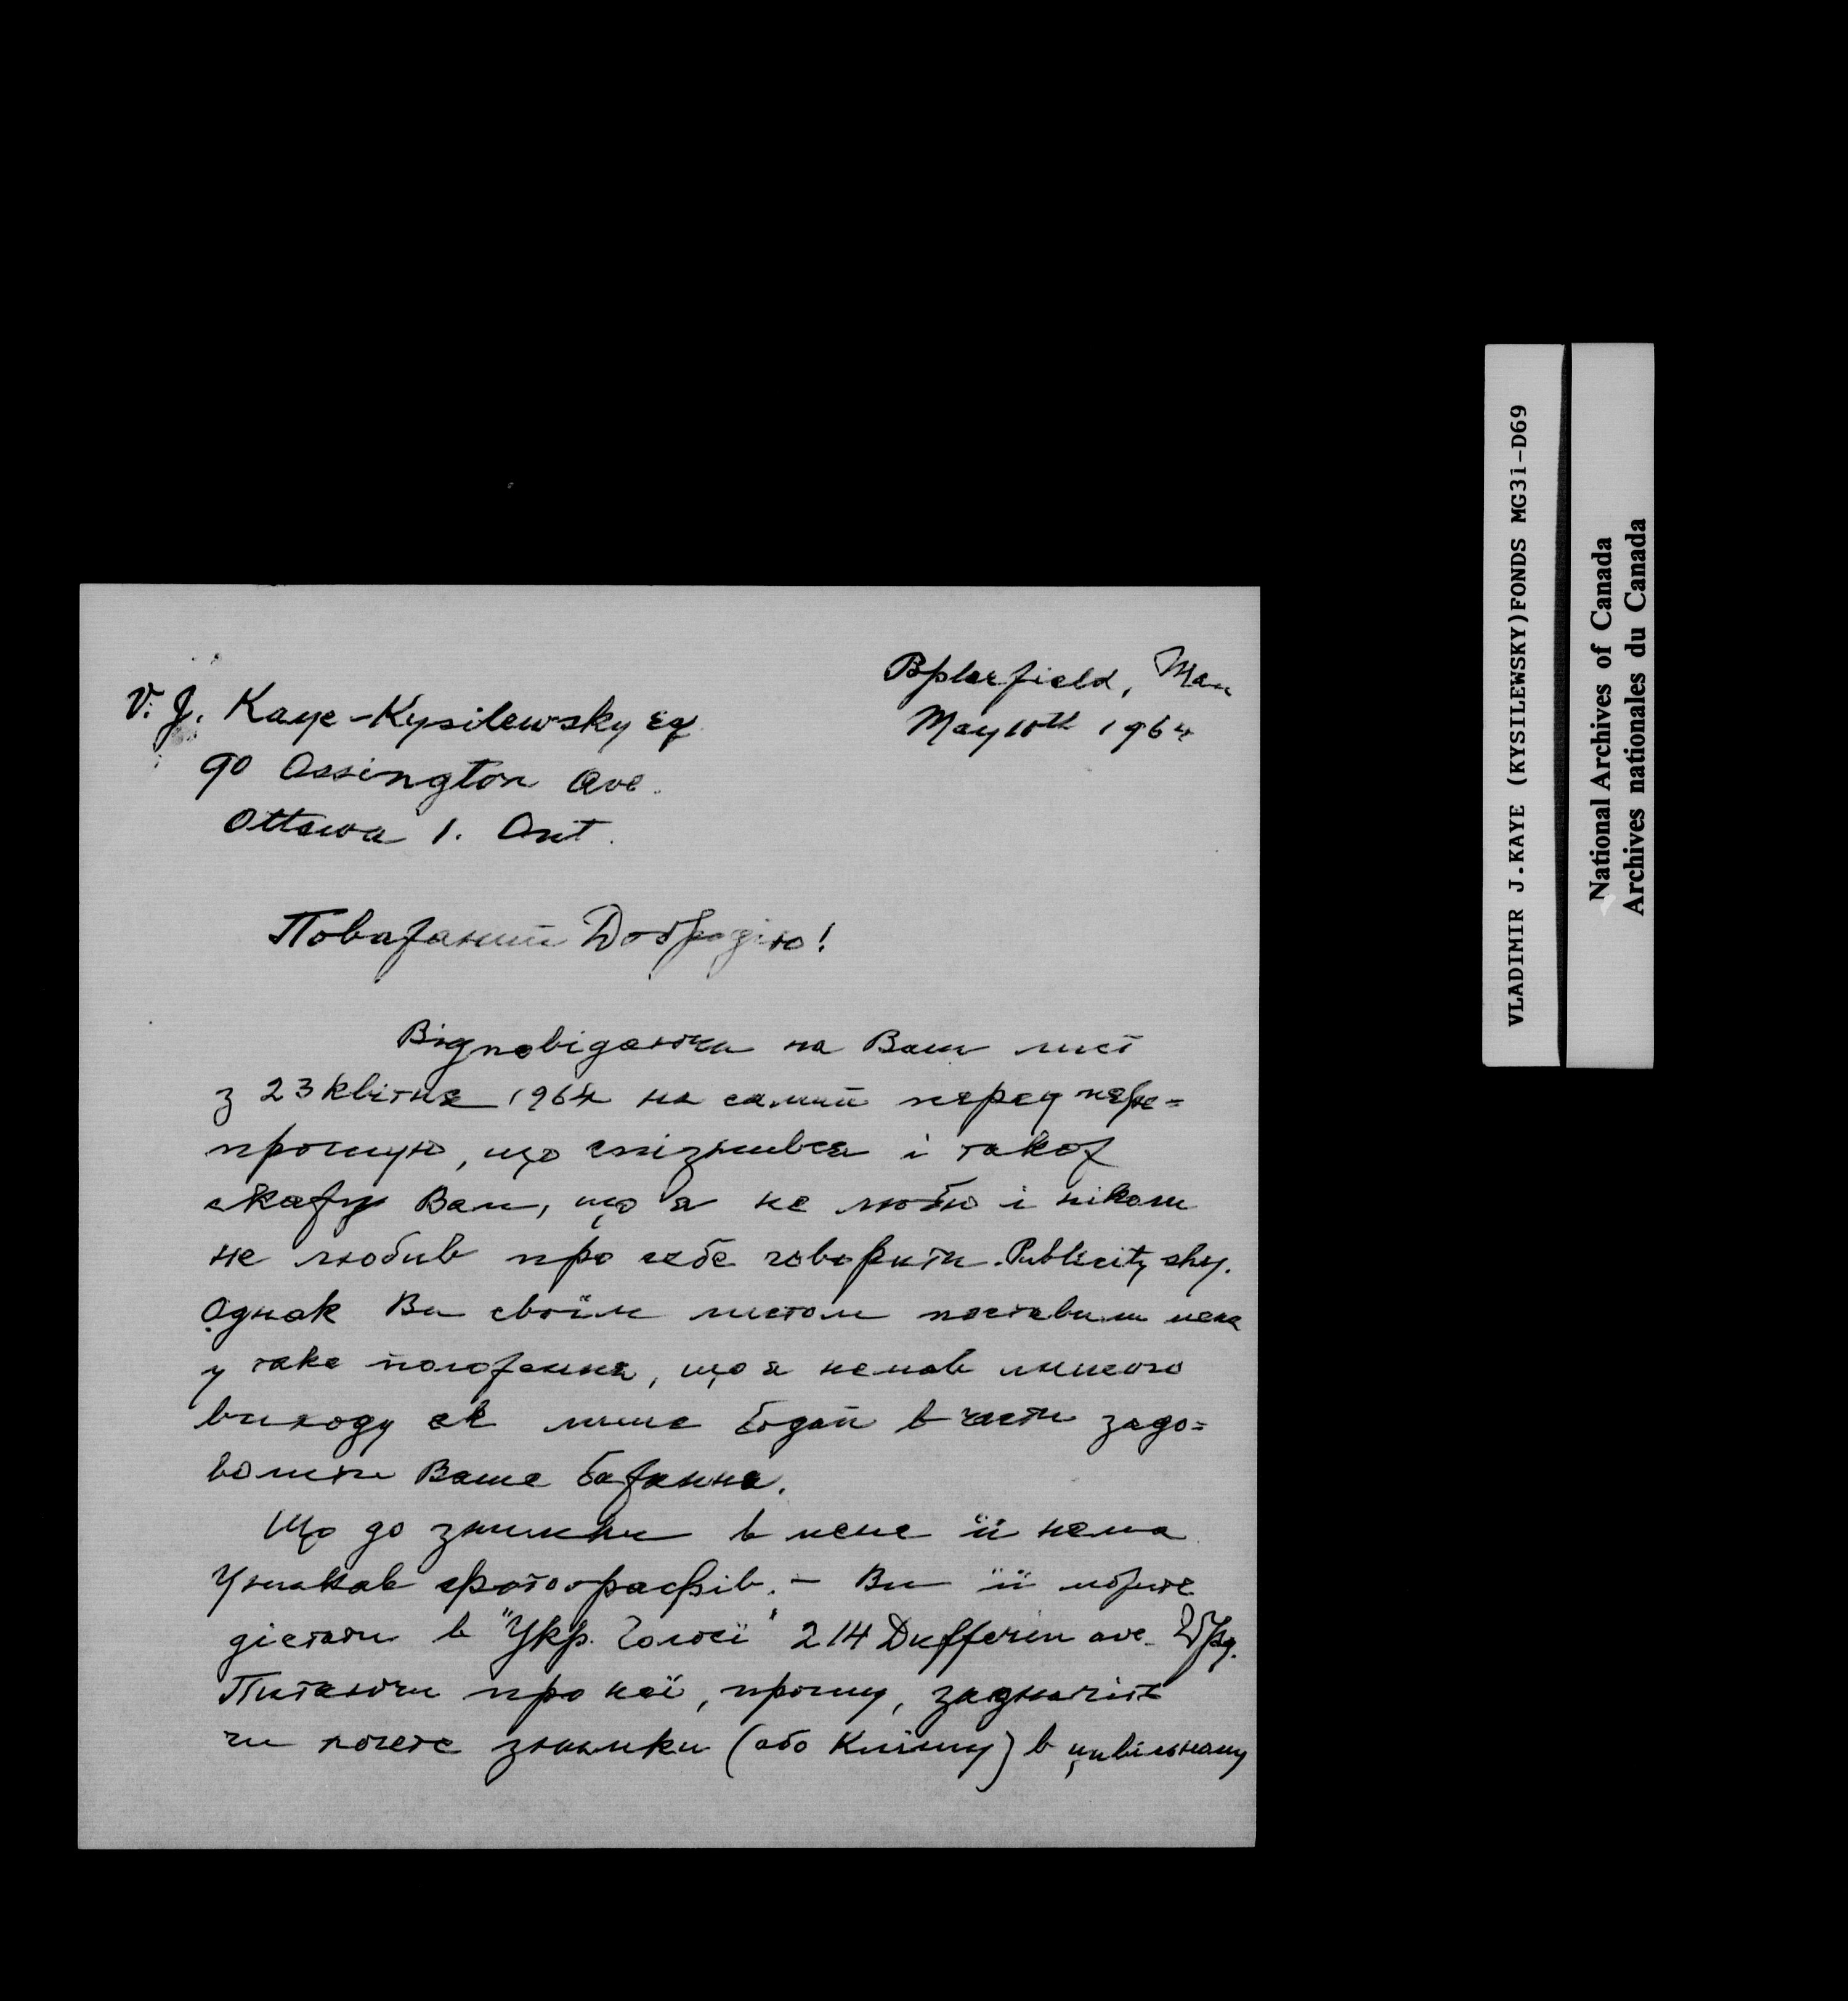 Oplerfield, Man
May 10th 1964
V. J. Kaye-Kysilewsky Eq.
90 Ossington Ave.
Ottawa 1. Ont.
Поважаний Добродію!
Відповідаючи на Ваш лист
з 23 квітня 1964 на самий перед пере=
прошую, що спізнився і також
скажу Вам, що я не люблю і ніколи
не любив про себе говорити. Publicity shy.
Однак Ви своїм листом поставили мене
у таке положення, що я не мав иншого
виходу як лише бодай в части задо=
волити Ваше бажання.
Що до знимки в мене її нема
Уникав фотографів. – Ви її можете
дістати в "Укр. Голосі" 214 Dufferin ave. Wpg.
Питаючи про неї, прошу, зазначіть
чи хочете знимки (або Клішу) в цивільному
VLADIMIR J.KAYE (KYSILEWSKY)FONDS MG31-D69
National Archives of Canada
Archives nationales du Canada